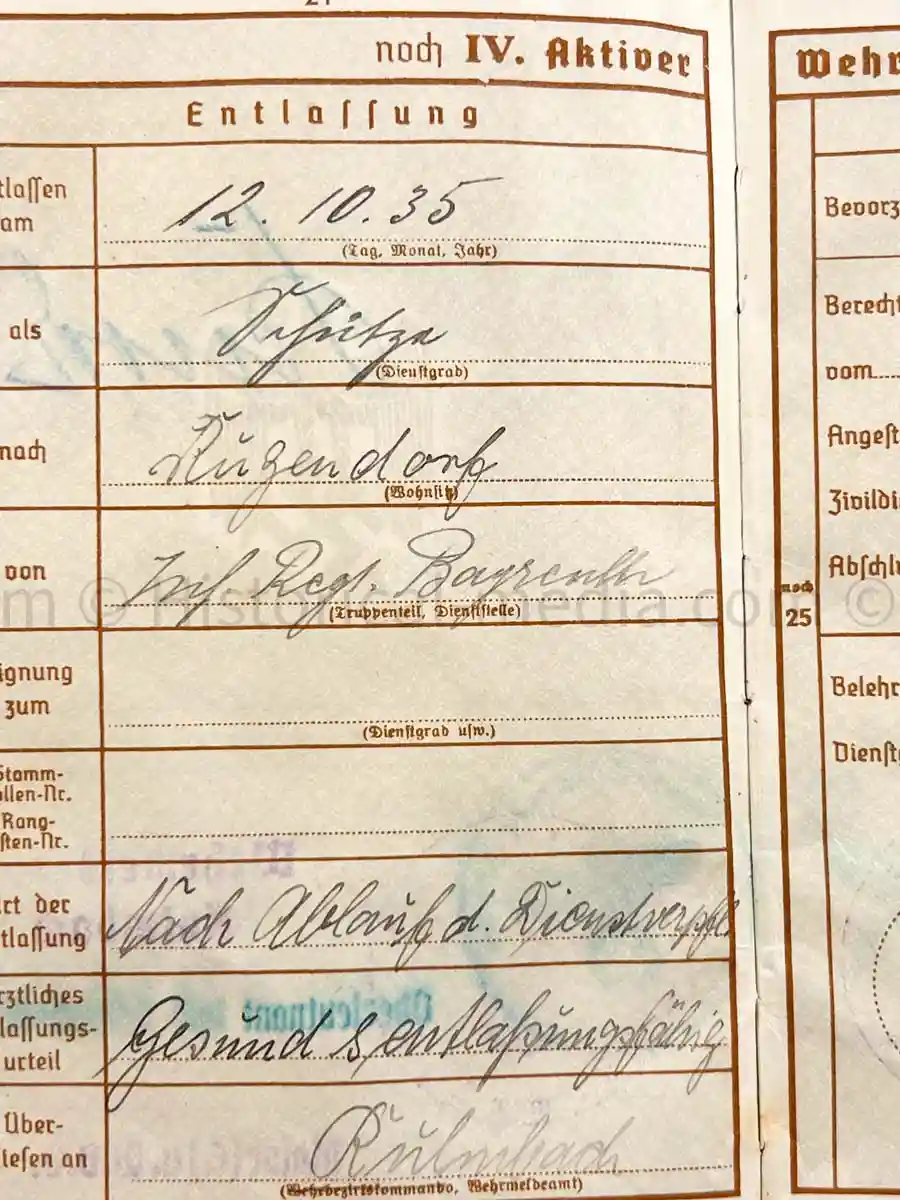 noch IV. Aktiver
Entlassung
tlassen
am
12. 10. 35
(Tag, Monat, Jahr)
als
Schütze
(Dienstgrad)
nach
Rugendorf
(Wohnsitz)
von
Inf Regt. Bayreuth
(Truppenteil, Dienststelle)
ignung
zum
(Dienstgrad usw.)
Stamm-
ollen-Nr.
Rang-
sten-Nr.
rt der
tlassung
Nach Ablauf d. Dienstverpfl.
rztliches
lassungs-
urteil
Gesund & entlaßungsfähig
Über-
iesen an
Kulmbach
(Wehrbezirkskommando, Wehrmeldeamt)
Wehr
Bevorz
Berecht
vom
Angest
Zivildi
Abschlu
noch
25
Belehr
Dienstg